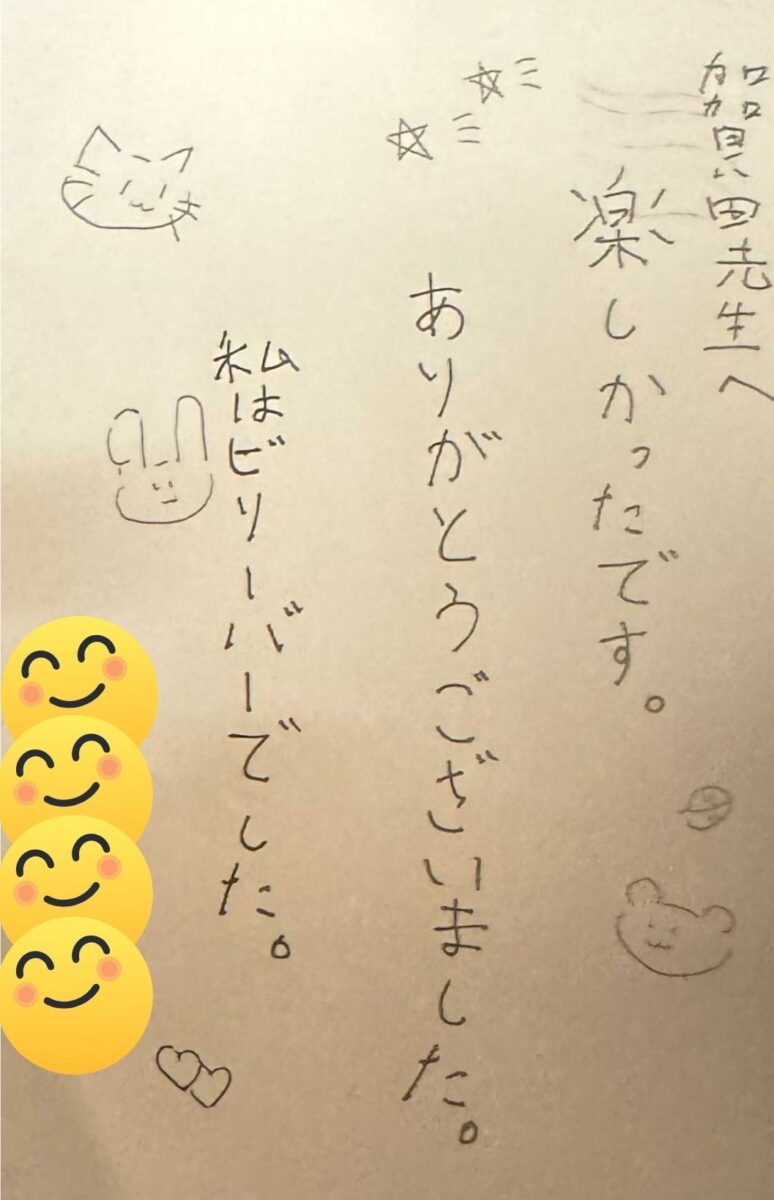 加賀田先生へ
楽しかったです。
ありがとうございました。
私はビリーバーでした。